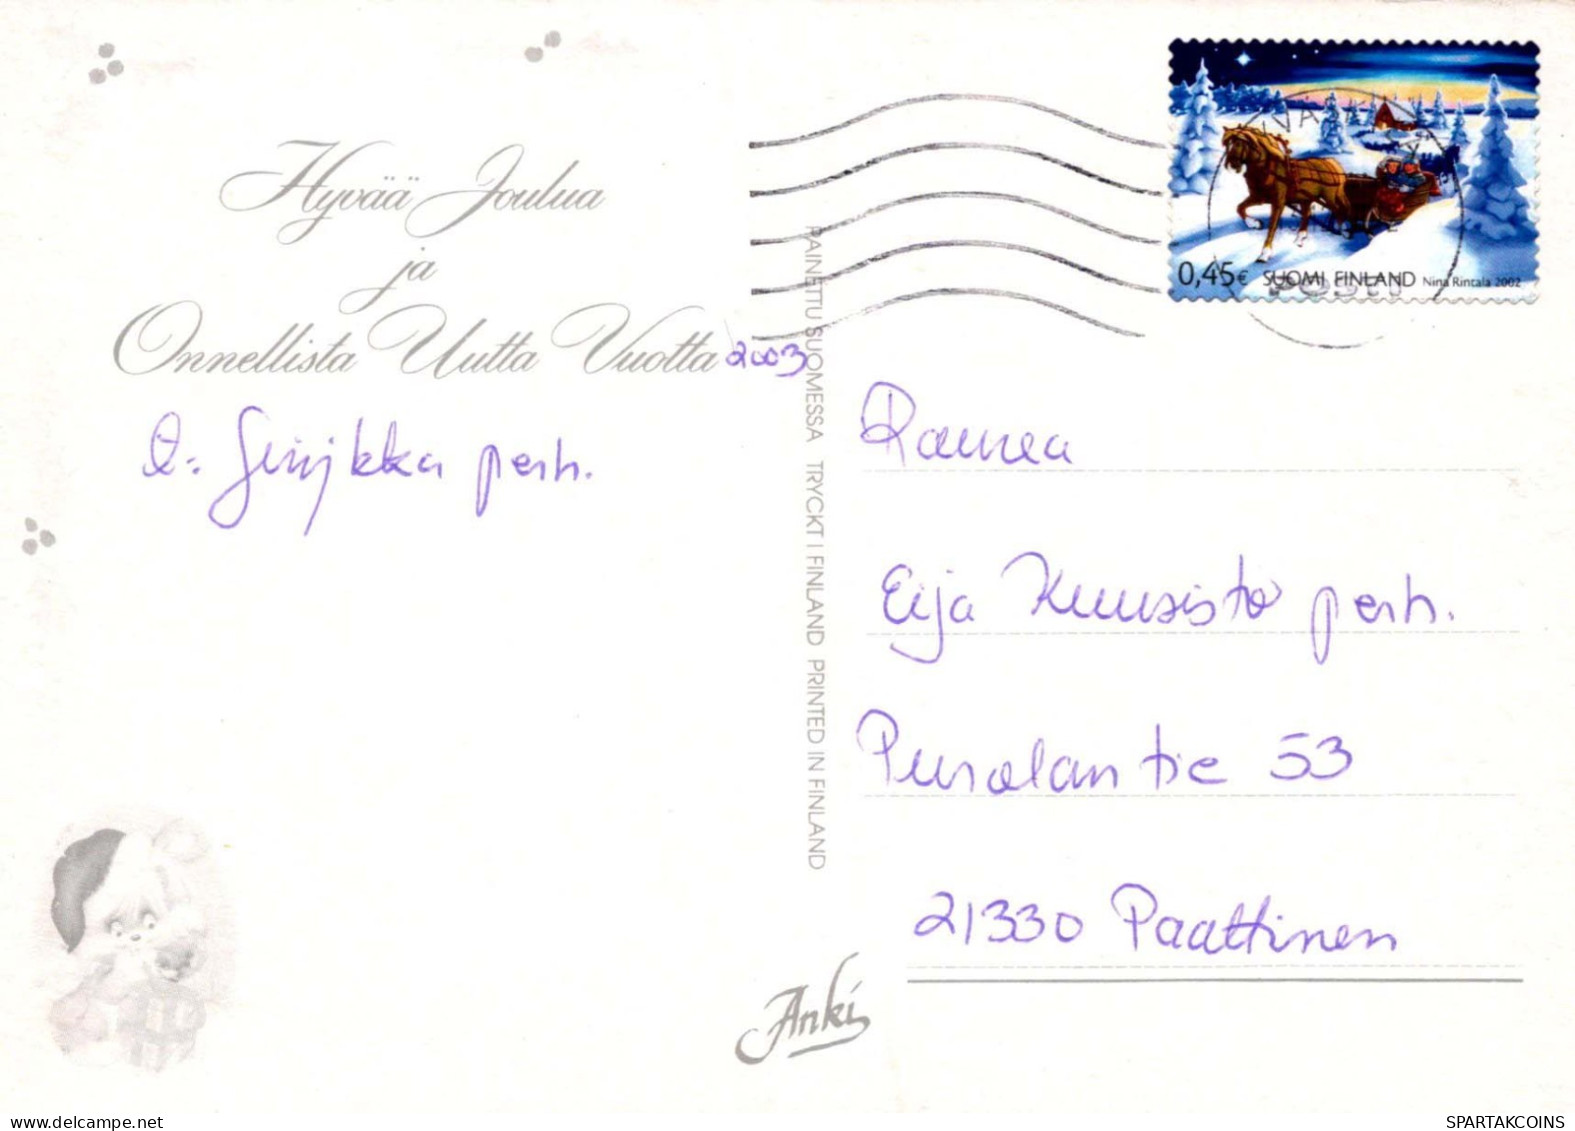 Hyvää Joulua
ja
Onnellista Uutta Vuotta 2003
perh.
PAINETTU SUOMESSA TRYCKT I FINLAND PRINTED IN FINLAND
0,45€ SUOMI FINLAND Nina Rintala 2002
POSTI
Eija Kuusisto perh.
53
21330 Paattinen
Anki
SPARTAKCOINS